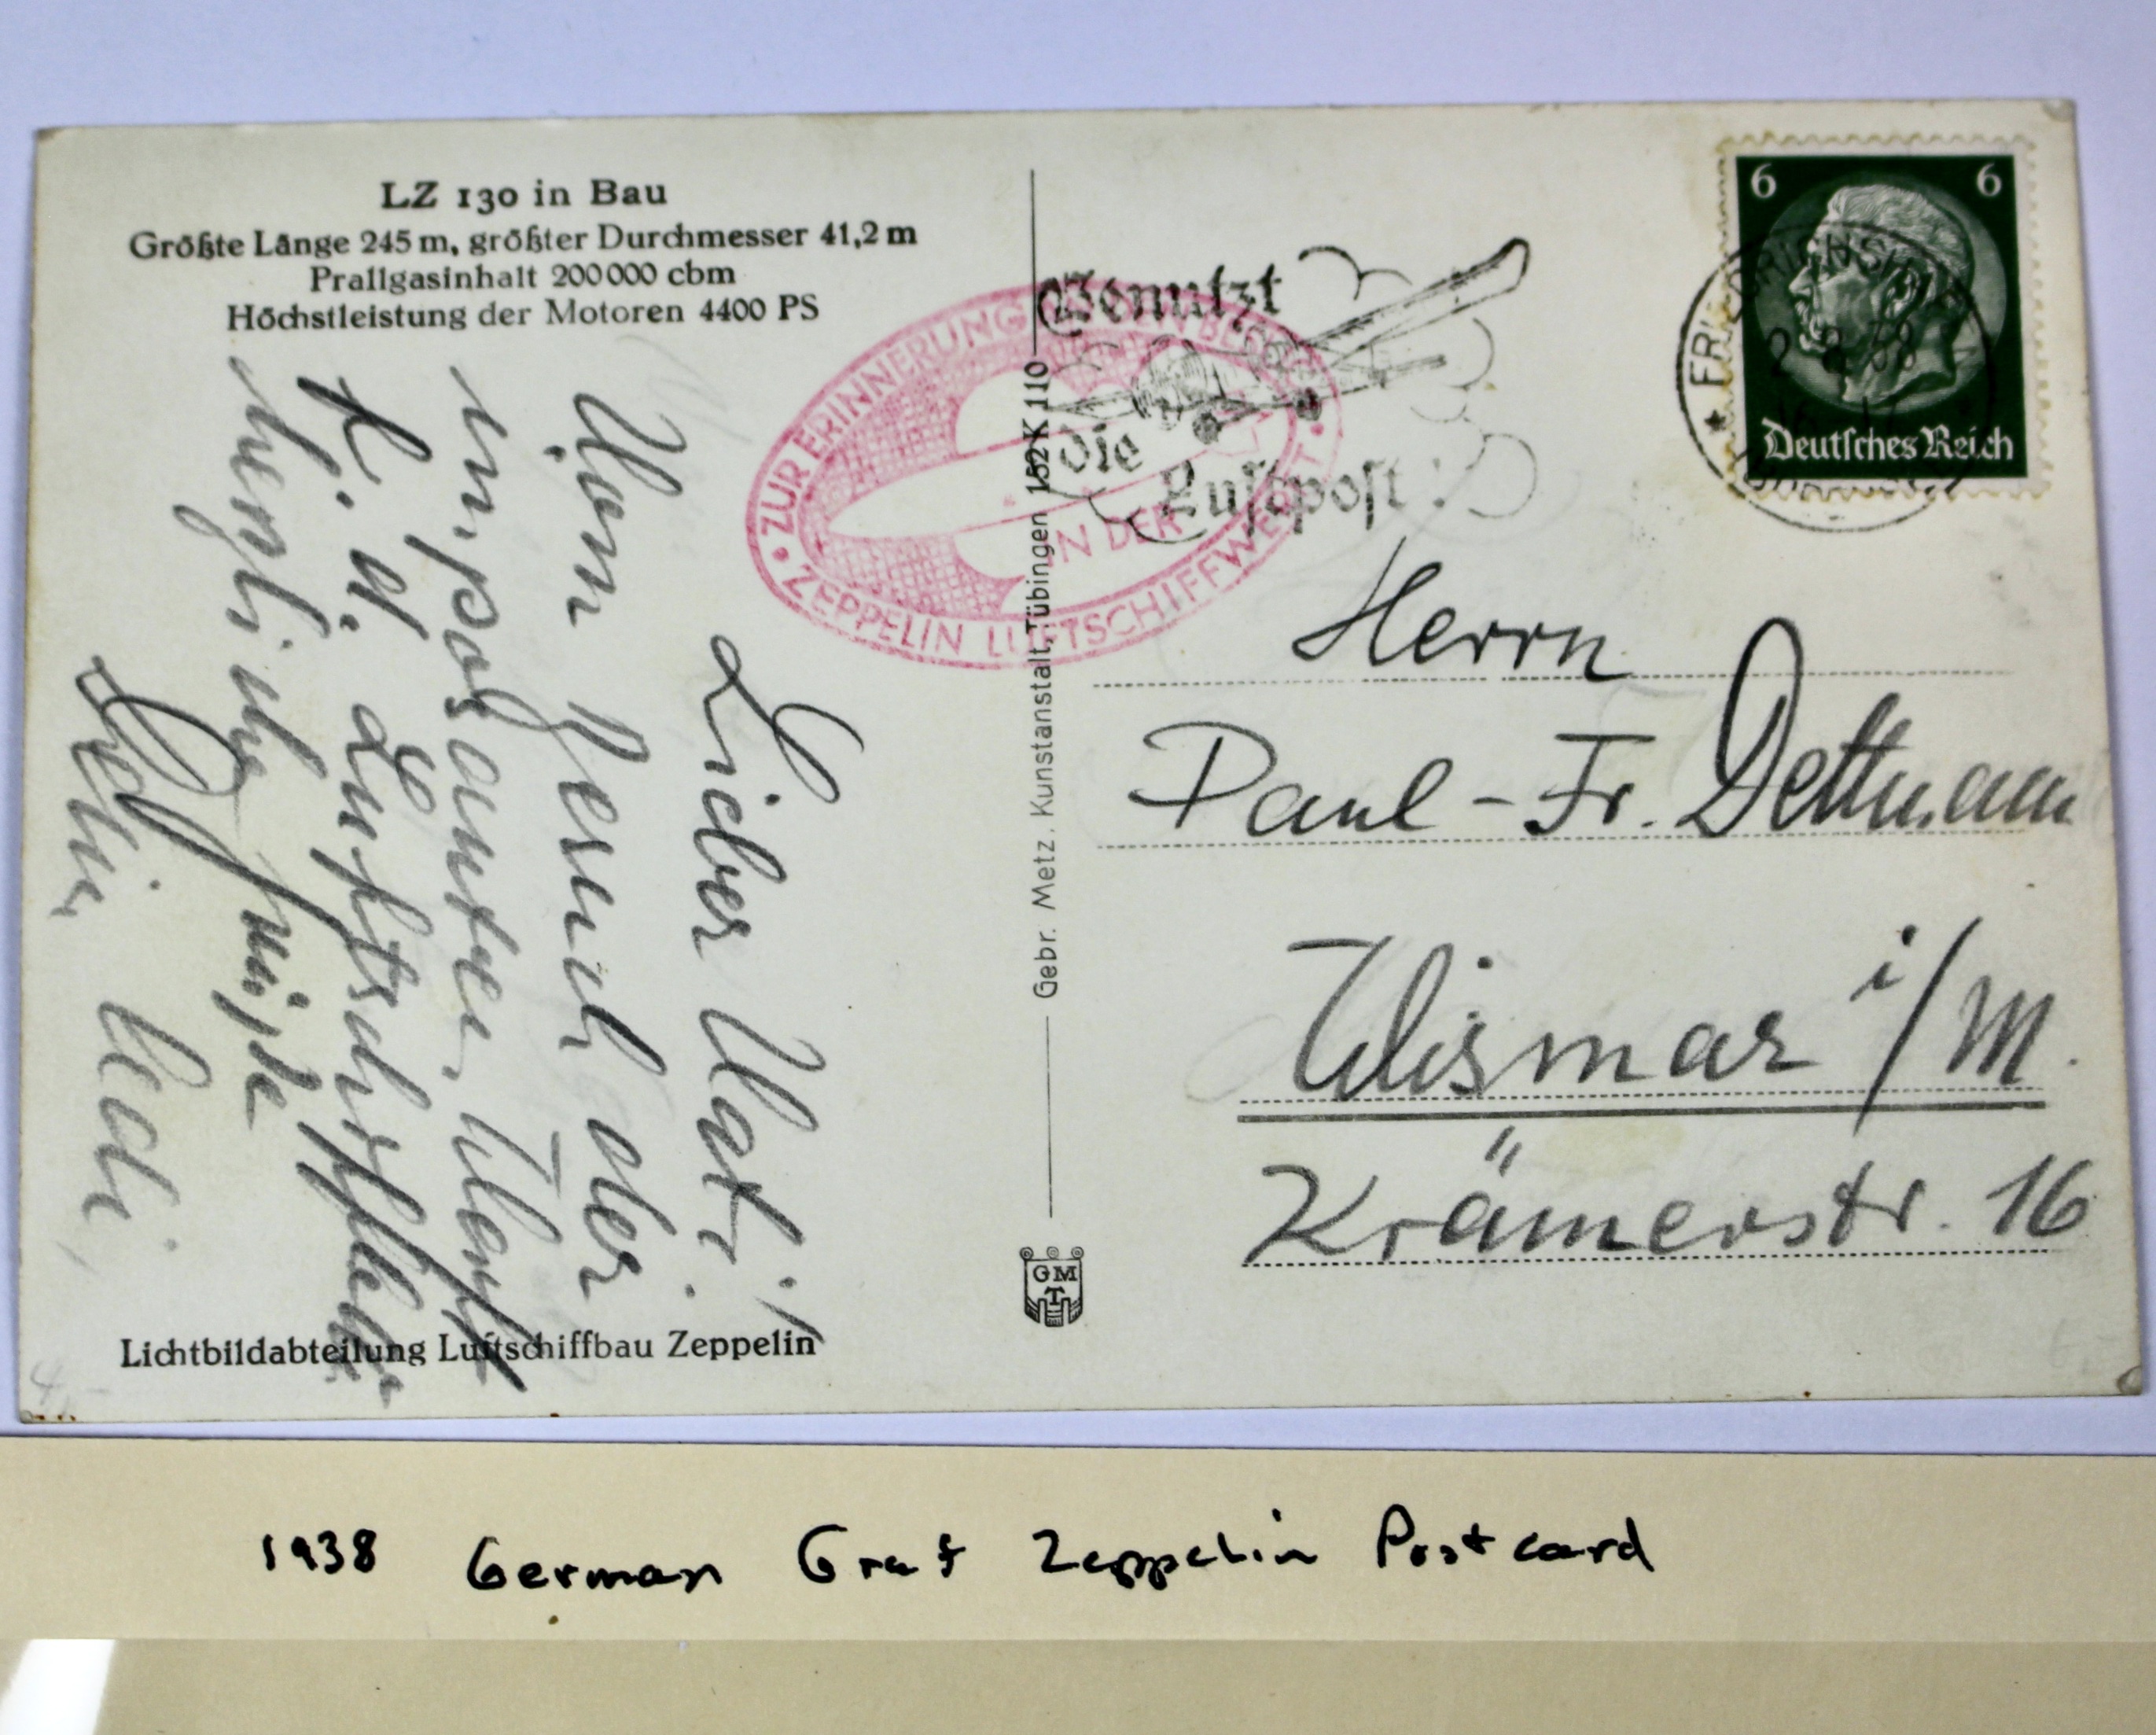 LZ 130 in Bau
Größte Länge 245 m, größter Durchmesser 41,2 m
Prallgasinhalt 200000 cbm
Höchstleistung der Motoren 4400 PS
Lieber Vati!
Vom Besuch der
imposanten
Luftschiffhalle
Grüße
Dein
Lichtbildabteilung Luftschiffbau Zeppelin
Gebr. Metz. Kunstanstalt, Tübingen 152 K 110
GMT
ZUR ERINNERUNG
IN DER
ZEPPELIN LUFTSCHIFFWERFT
Benutzt
die
Luftpost
6 6
Deutsches Reich
FRIEDRICHSHAFEN
38
Herrn
Paul-Fr. Dettmann
Wismar i/M.
Krämerstr. 16
1938 German Graf Zeppelin Postcard